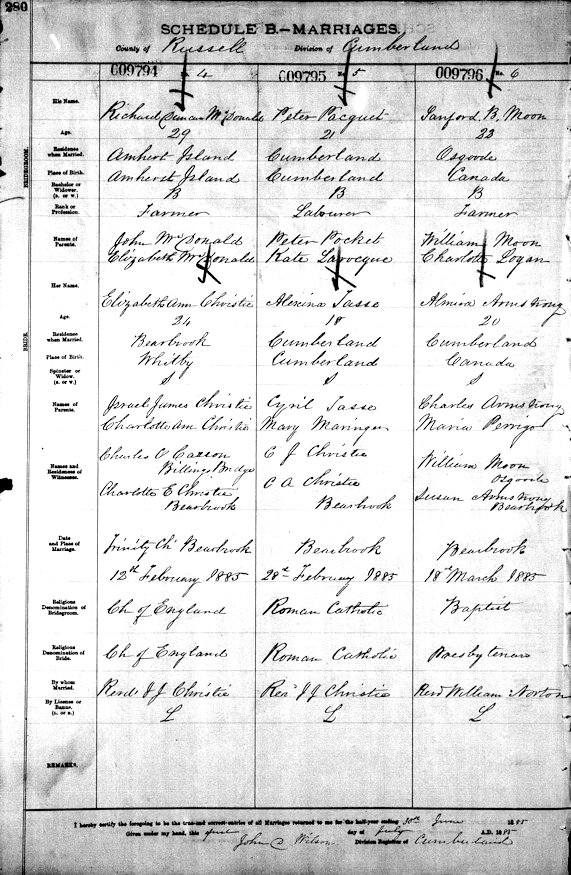 280
SCHEDULE B.—MARRIAGES.
County of Russell Division of Cumberland
009794 No. 4 009795 No. 5 009796 No. 6
BRIDEGROOM.
His Name. Richard Duncan McDonald Peter Pacquet Sanford B. Moon
Age. 29 21 22
Residence when Married. Amherst Island Cumberland Osgoode
Place of Birth. Amherst Island Cumberland Canada
Bachelor or Widower. (B. or W.) B B B
Rank or Profession. Farmer Labourer Farmer
Names of Parents. John McDonald Peter Pocket William Moon
Elizabeth McDonald Kate Larocque Charlotte Logan
BRIDE.
Her Name. Elizabeth Ann Christie Alexina Tasse Almira Armstrong
Age. 24 18 20
Residence when Married. Bearbrook Cumberland Cumberland
Place of Birth. Whitby Cumberland Canada
Spinster or Widow. (S. or W.) S S S
Names of Parents. Israel James Christie Cyril Tasse Charles Armstrong
Charlotte Ann Christie Mary Maringer Maria Perrigo
Names and Residences of Witnesses. Charles O Casson Billings Bridge C J Christie William Moon Osgoode
Charlotte E Christie Bearbrook C A Christie Bearbrook Susan Armstrong Bearbrook
Date and Place of Marriage. Trinity Ch Bearbrook Bearbrook Bearbrook
12th February 1885 28th February 1885 18th March 1885
Religious Denomination of Bridegroom. Ch of England Roman Catholic Baptist
Religious Denomination of Bride. Ch of England Roman Catholic Presbyterian
By whom Married. Revd J J Christie Revd J J Christie Revd William Norton
By License or Banns. (L. or B.) L L L
REMARKS.
I hereby certify the foregoing to be the true and correct entries of all Marriages returned to me for the half-year ending 30th June 1885
Given under my hand, this first day of July A.D. 1885
John D Wilson Division Registrar of Cumberland